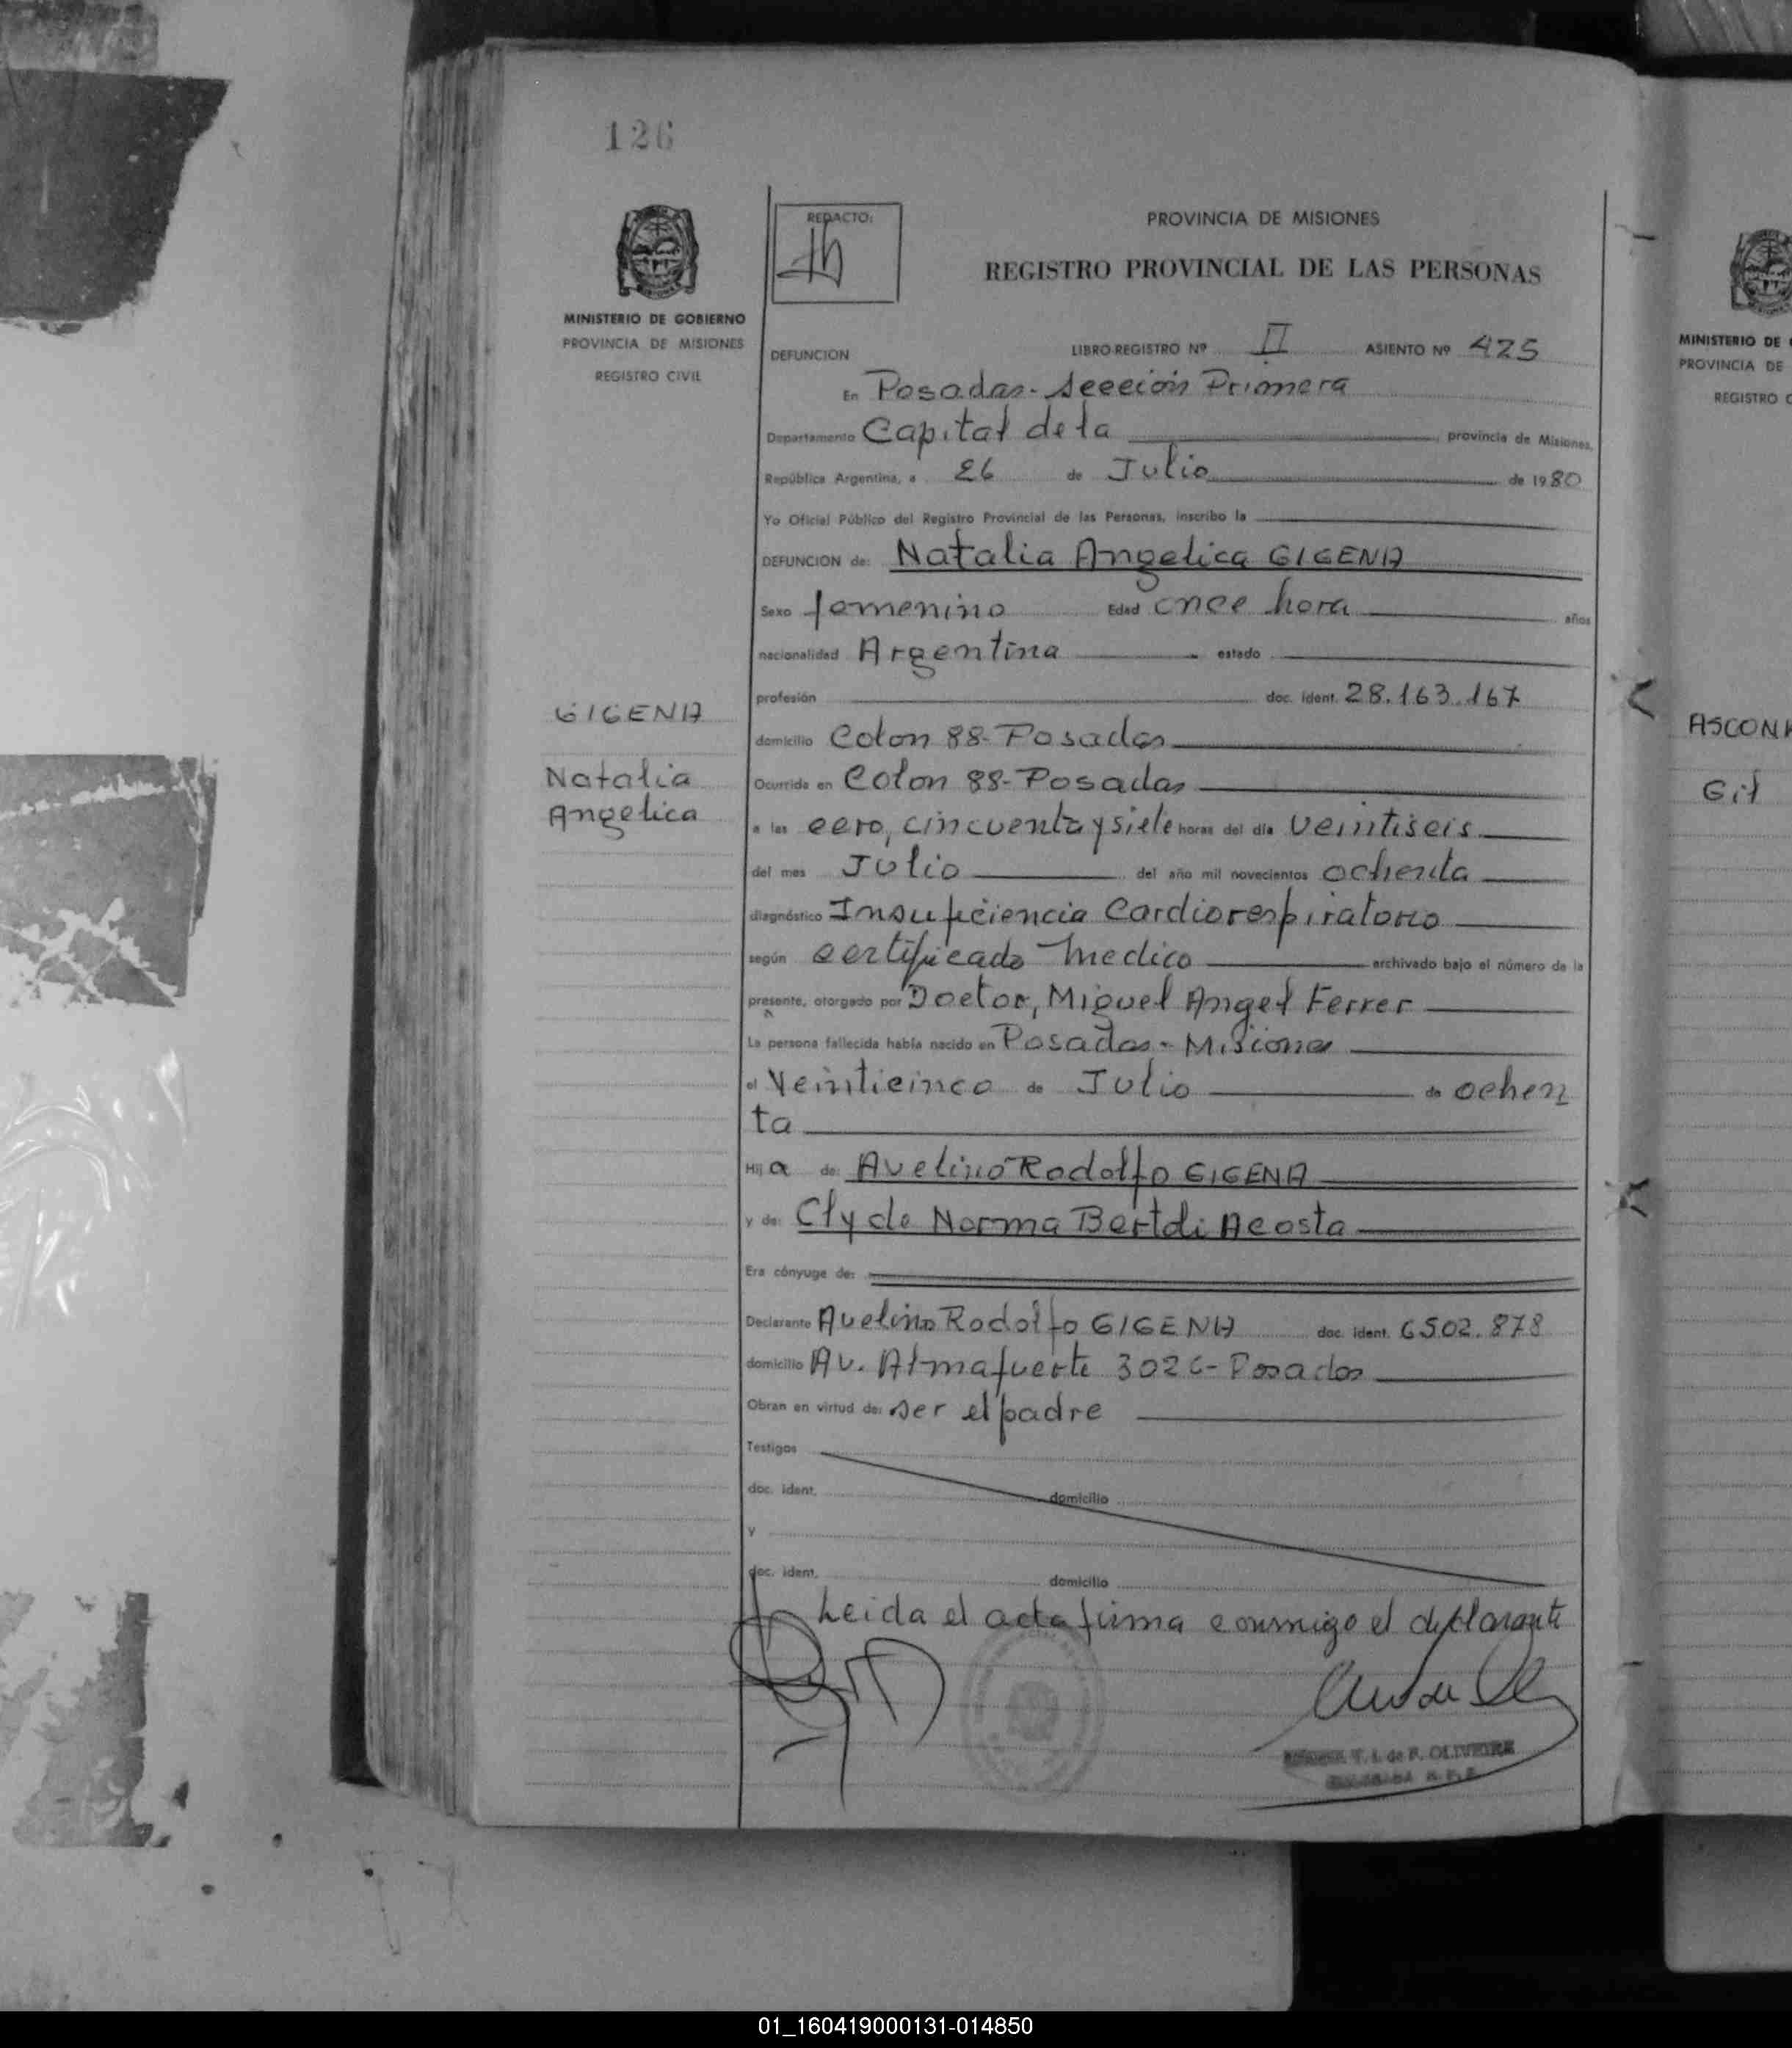 126
MINISTERIO DE GOBIERNO
PROVINCIA DE MISIONES
REGISTRO CIVIL
GIGENA
Natalia
Angelica
REDACTO:
PROVINCIA DE MISIONES
REGISTRO PROVINCIAL DE LAS PERSONAS
DEFUNCION LIBRO-REGISTRO Nº II ASIENTO Nº 425
En Posadas - Sección Primera
Departamento Capital de la provincia de Misiones,
República Argentina, a 26 de Julio de 1980
Yo Oficial Público del Registro Provincial de las Personas, inscribo la
DEFUNCION de: Natalia Angelica GIGENA
Sexo femenino Edad once hora años
nacionalidad Argentina estado
profesión doc. ident. 28.163.167
domicilio Colon 88- Posadas
Ocurrida en Colon 88- Posadas
a las cero, cincuenta y siete horas del día veintiseis
del mes Julio del año mil novecientos ochenta
diagnóstico Insuficiencia Cardiorespiratorio
según certificado Medico archivado bajo el número de la
presente, otorgado por Doctor, Miguel Angel Ferrer
La persona fallecida había nacido en Posadas - Misiones
el Veinticinco de Julio de ochen
ta
Hij a de: Avelino Rodolfo GIGENA
y de: Clyde Norma Bertoli Acosta
Era cónyuge de:
Declarante Avelino Rodolfo GIGENA doc. ident. 6502.878
domicilio Av. Almafuerte 3026- Posadas
Obran en virtud de: ser el padre
Testigos
doc. ident. domicilio
y
doc. ident. domicilio
Leida el acta firma conmigo el declarante
T. I. de F. OLIVEIRA
MINISTERIO DE
PROVINCIA DE
REGISTRO
ASCON
Gil
01_160419000131-014850